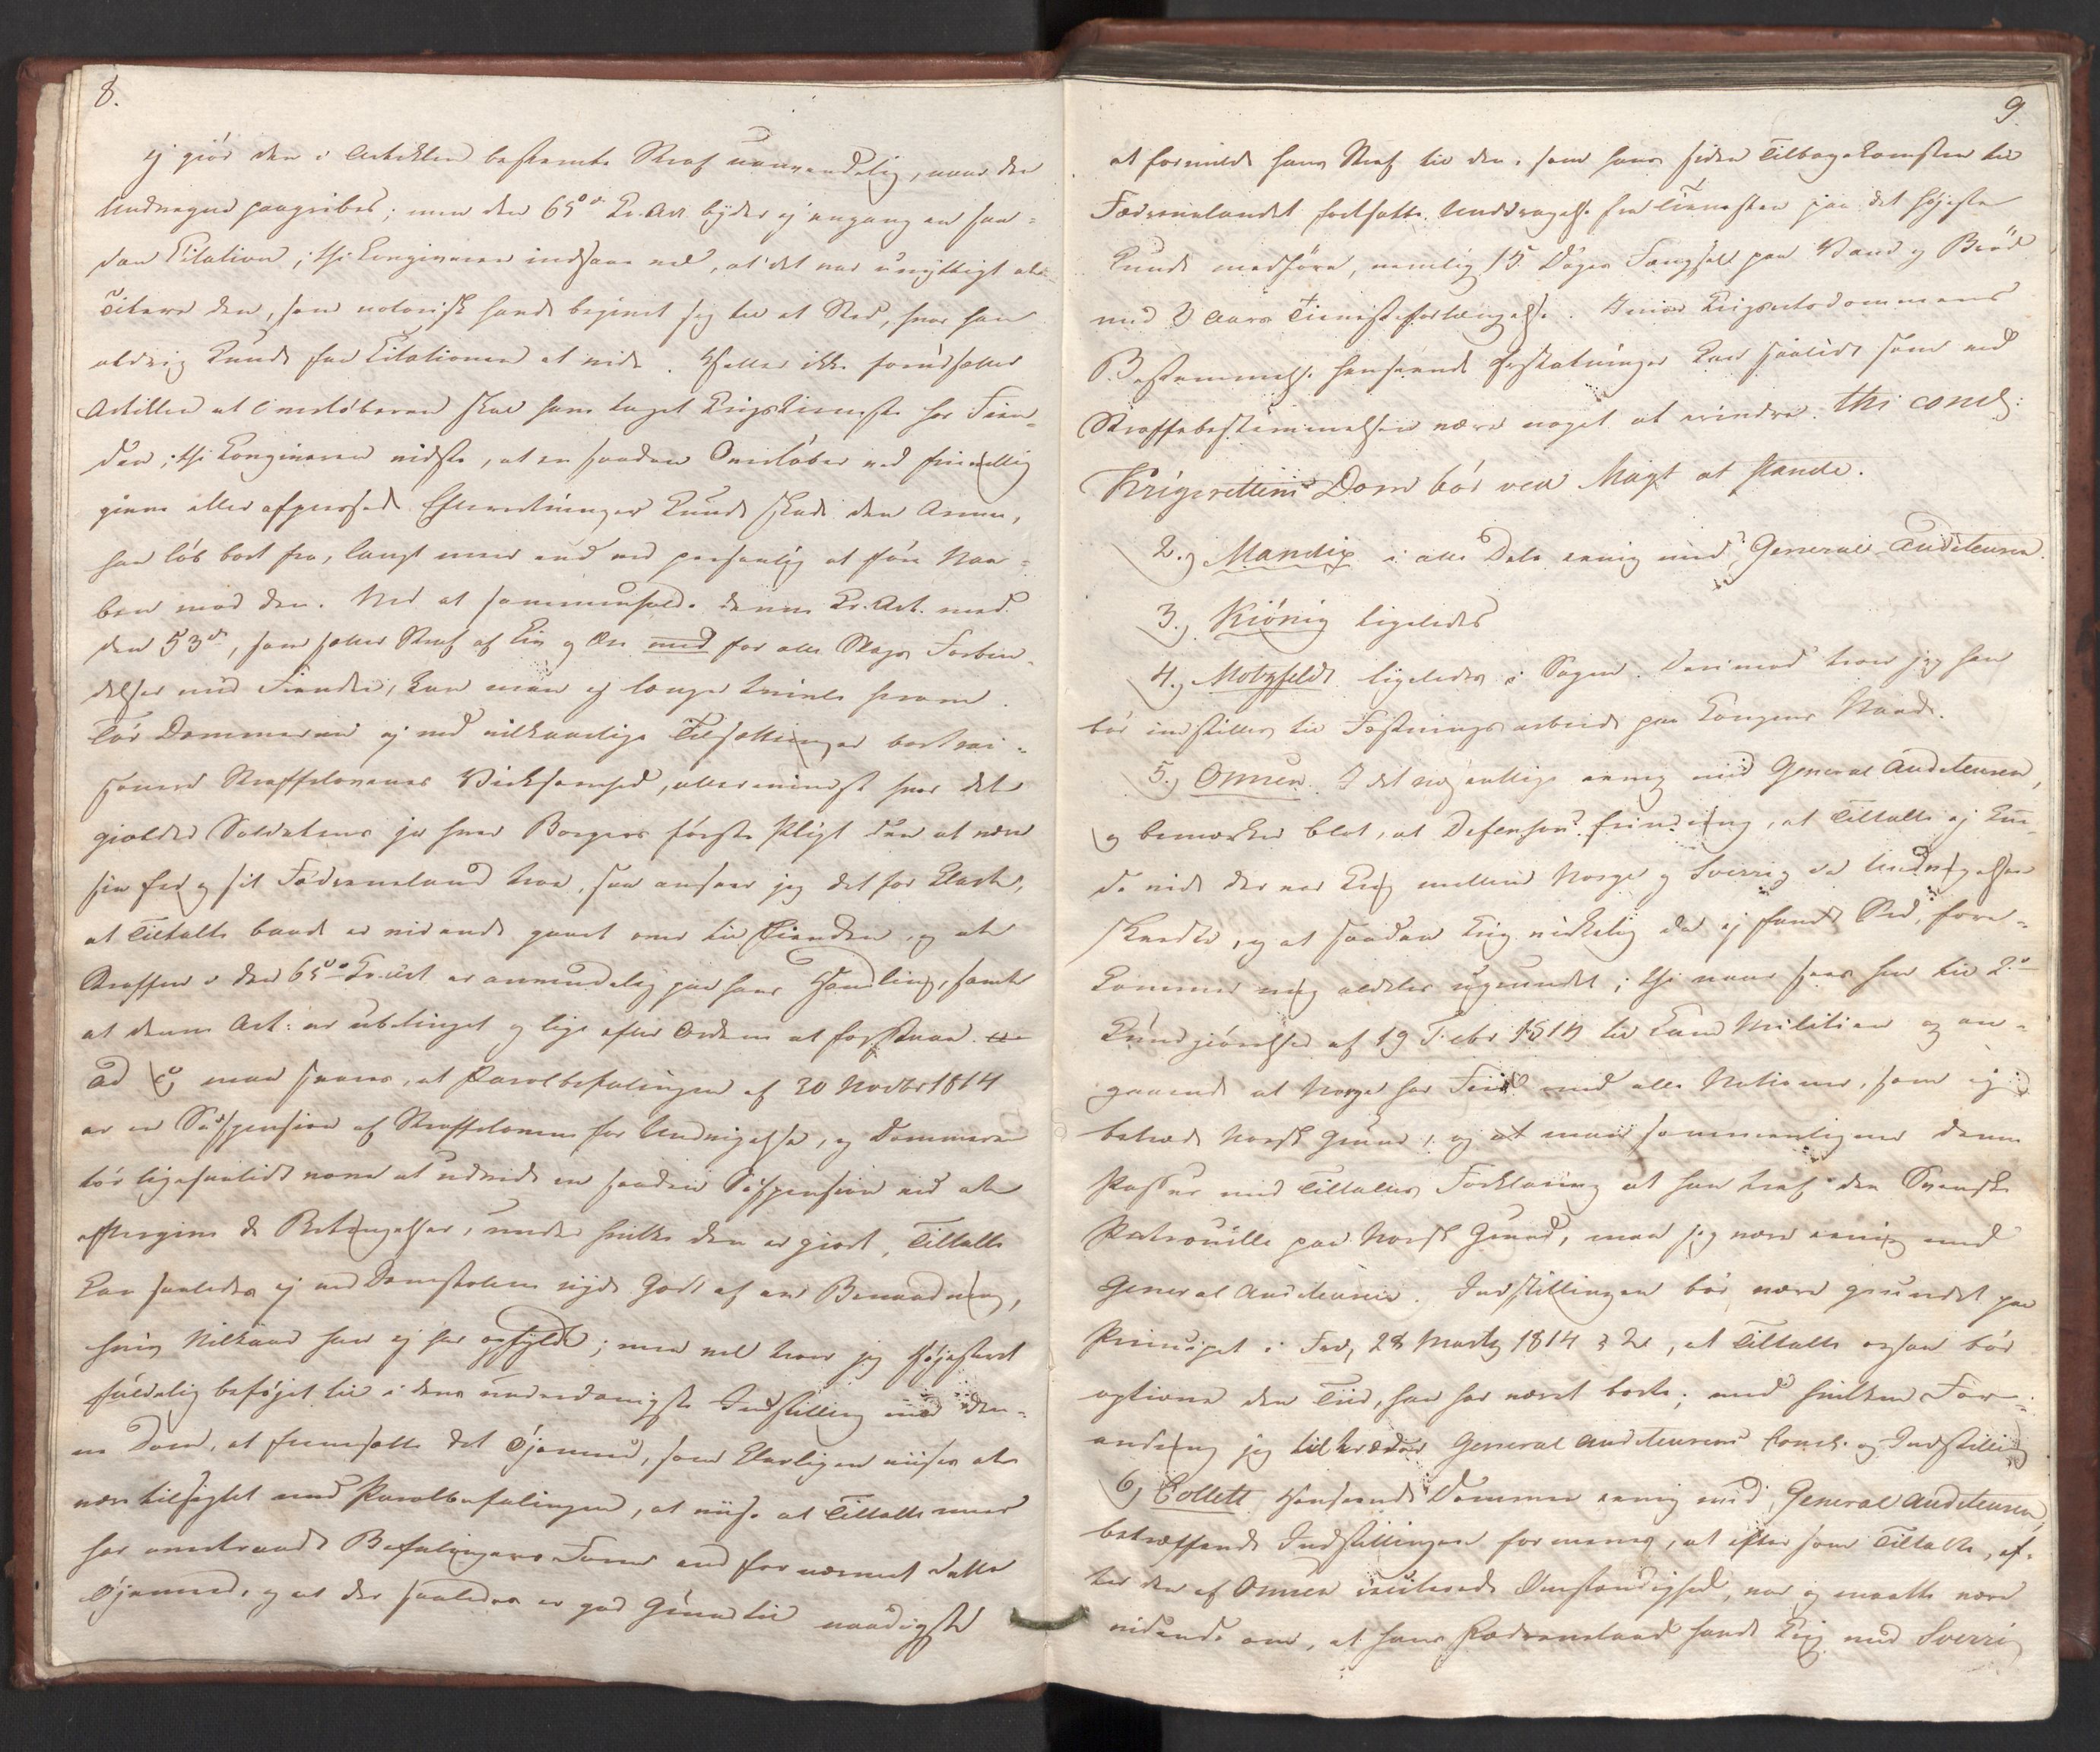 8.
ej giör den i Artiklen bestemte Straf uanvendelig, naar den
Undvegne paagribes; men den 65de Kr. Art. byder ej engang en saa-
dan Citation; thi Lovgiveren indsaae vel, at det var unyttigt at
citere den, som notorisk havde begivet sig til et Sted, hvor han
aldrig kunde faae Citationen at vide. Heller ikke forudsætter
Artiklen at Overløberen skal have taget Krigstieneste hos Fien-
den; thi Lovgiveren vidste, at en saadan Overløber ved frivillig
givne eller afpressede Efterretninger kunde skade den Armee,
han løb bort fra, langt meer end ved personlig at føre Vaa-
ben mod den. Ved at sammenholde denne Kr. Art. med
den 53de, som sætter Straf af Liv og Ære ved for alle Slags Forbin-
delser med Fiender, kan man ej længe tvivle herom.
Tør Dommeren ej ved vilkaarlige Tilsætninger bortrai-
sonnere Straffelovenes Virksomhed, allermindst hvor det
gjælder Soldatens ja hver Borgers første Pligt den at være
sin Eed og sit Fædreneland troe, saa ansaaer jeg det for klart,
at Tiltalte baade er vidende gaaet over til Fienden, og at
Straffen i den 65de Kr. Art er anvendelig paa hans Handling, samt
at denne Art: er ubetinget og lige efter Ordene at forstaae.
Ad c) maa svares, at Parolbefalingen af 30 Novbr 1814
er en Suspension af Straffeloven for Undvigelse, og Dommeren
tør ligesaalidt vove at udvide en saadan Suspension ved at
eftergive de Betingelser, under hvilke den er giort, Tiltalte
kan saaledes ej ved Domstolene nyde Godt af en Benaadning,
hvis Vilkaar han ej har opfyldt; men vel troer jeg Højesteret
fuldelig beføjet til i dens underdanigste Indstilling med den-
ne Dom, at fremsætte det Øjemed, som klarligen viises at
være tilsigtet med Parolbefalingen, at viise at Tiltalte meer
har overtraadt Befalingens Form end fornærmet dette
Øjemed, og at der saaledes er god Grund til naadigst
9
at formilde hans Straf til den, som hans siden Tilbagekomsten til
Fædrenelandet fortsatte Unddragelse fra Tienesten paa det højeste
kunde medføre, nemlig 15 Dages Fængsel paa Vand og Brød
med 3 Aars Tienesteforlængelse. Imod Krigsretsdommens
Bestemmelse henseende Erstatninger kan saalidt som ved
Straffebestemmelsen være noget at erindre. Thi concl:
Krigsrettens Dom bør ved Magt at stande.
2.) Mandix i alle Dele eenig med General-Auditeuren.
3.) Kiönig ligeledes
4.) Motzfeldt ligeledes i Sagen. Derimod troer jeg han
bør indstilles til Fæstningsarbeide paa Kongens Naade.
5.) Omsen. I det væsentlige eenig med General Auditeuren,
og bemærker blot, at Defensors Erindring, at Tiltalte ej kun-
de vide der var Krig mellem Norge og Sverrig da Undvigelsen
skeedte, og at saadan Krig virkelig da ej fandt Sted, fore-
kommer mig aldeles ugrundet; thi naar sees hen til
Kundgiørelse af 19 Febr 1814 til Land Militien og an-
gaaende at Norge har Fred med alle Nationer, som ej
betræde Norsk Grund, og at man sammenligner denne
Passus med Tiltaltes Forklaring at han traf den Svenske
Patrouille paa Norsk Grund, maa jeg være eenig med
General Auditeuren. Indstillingen bør være grundet paa
Principet i Frd. 28 Martz 1814 § 2, at Tiltalte ogsaa bør
optiene den Tiid, han har været borte; med hvilken For-
andring jeg tiltræder General Auditeurens Concl. og Indstilling
6) Collett Henseende Dommen eenig med General Auditeuren,
betræffende Indstillingen formenes, at eftersom Tiltalte, ef-
ter den af Omsen Omstændighed, var og maatte være
vidende om, at hans Fædreneland havde Krig med Sverrig